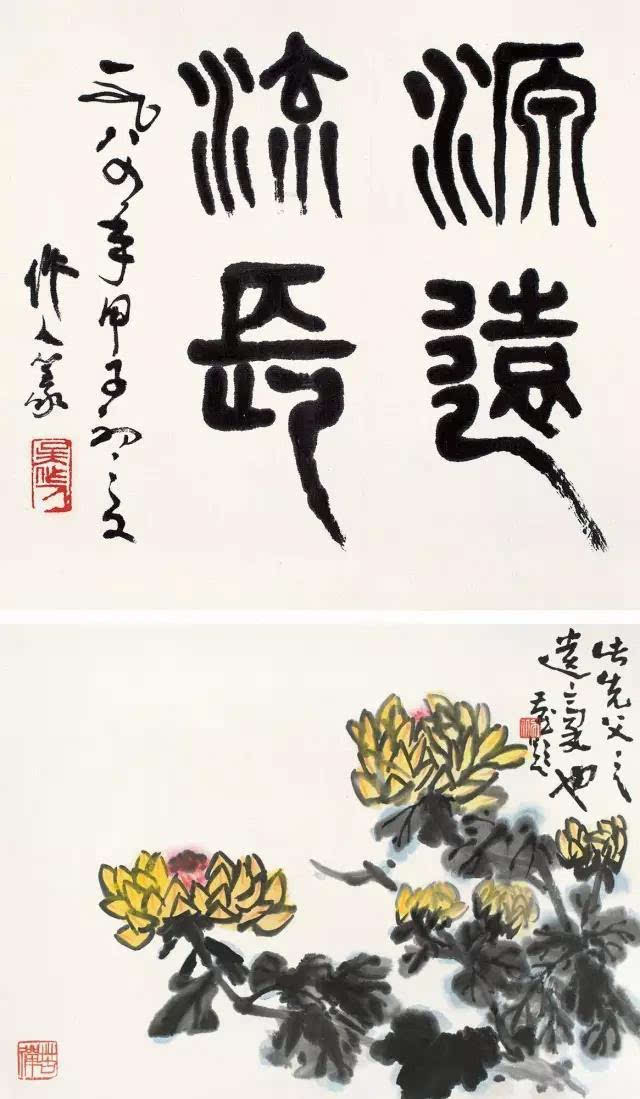 源遠
流長
一九八四年甲子初夏
作人篆
吳作人
此先父之
遺墨也
燕题
苦禪